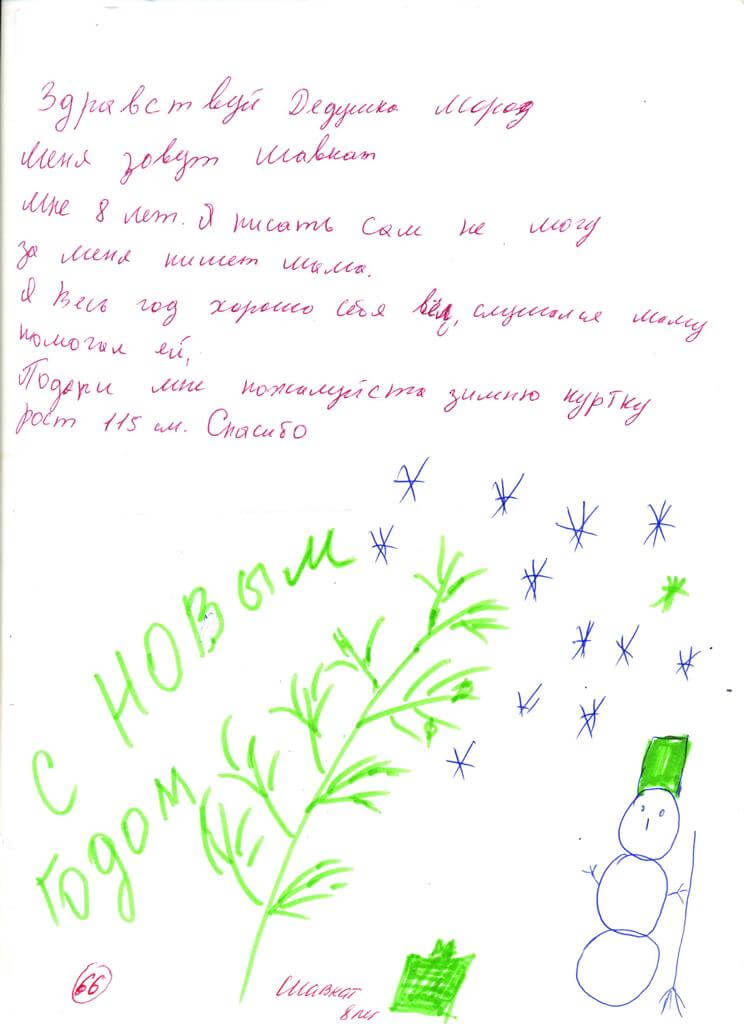 Здравствуй Дедушка Мороз
Меня зовут Шавкат
Мне 8 лет. Я писать сам не могу
за меня пишет мама.
Я весь год хорошо себя вёл, слушался маму
помогал ей,
Подари мне пожалуйста зимнюю куртку
рост 115 см. Спасибо
С НОВЫМ
ГОДОМ
66
Шавкат
8 лет